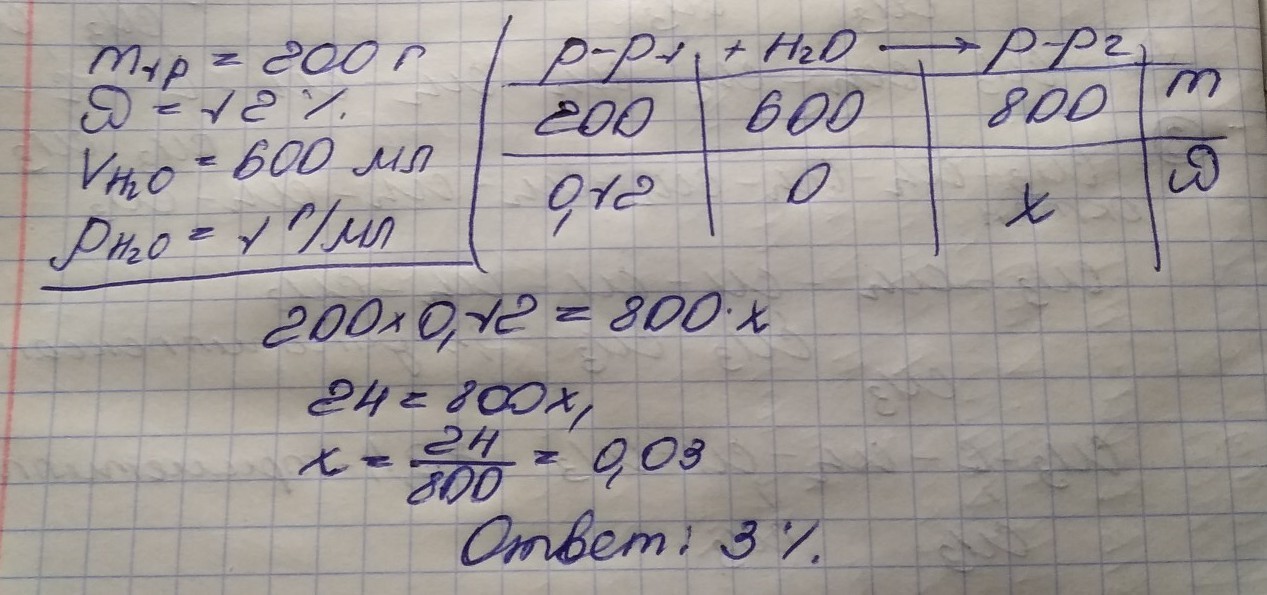 m₁р = 200 г
ω = 12 %.
V H₂O = 600 мл
ρ H₂O = 1 г/мл
р-р₁ + H₂O → р-р₂
200 600 800 m
0,12 0 x ω
200 × 0,12 = 800 · x
24 = 800x,
x = 24/800 = 0,03
Ответ: 3 %.